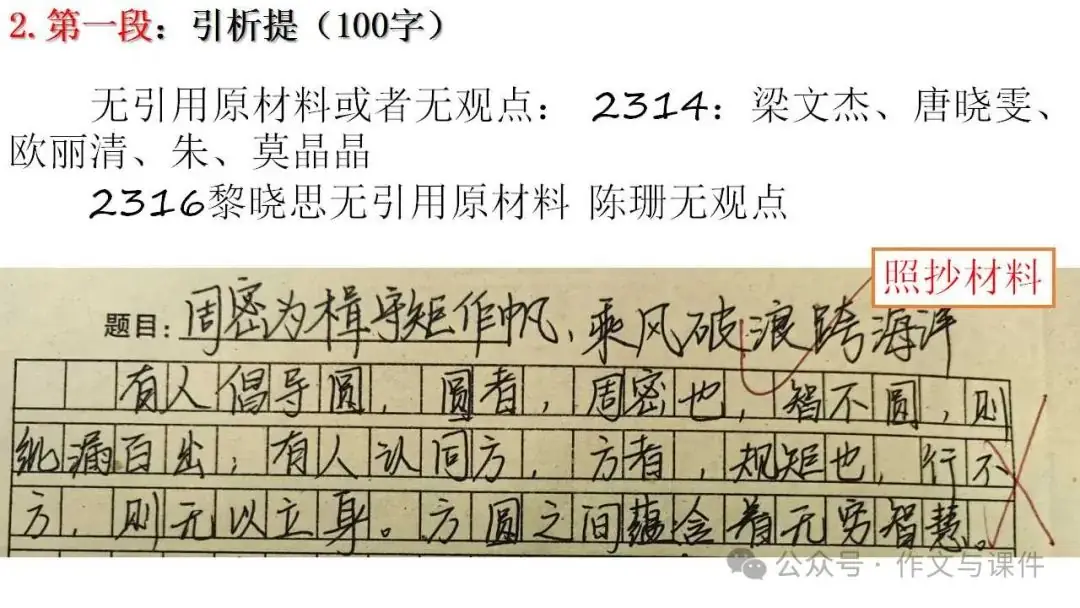 2. 第一段：引析提（100字）
无引用原材料或者无观点： 2314：梁文杰、唐晓雯、
欧丽清、朱、莫晶晶
2316黎晓思无引用原材料 陈珊无观点
照抄材料
题目：周密为楫守矩作帆、乘风破浪跨海洋
有人倡导圆，圆者，周密也，智不圆，则
纰漏百出；有人认同方，方者，规矩也，行不
方，则无以立身。方圆之间蕴含着无穷智慧。
公众号·作文与课件